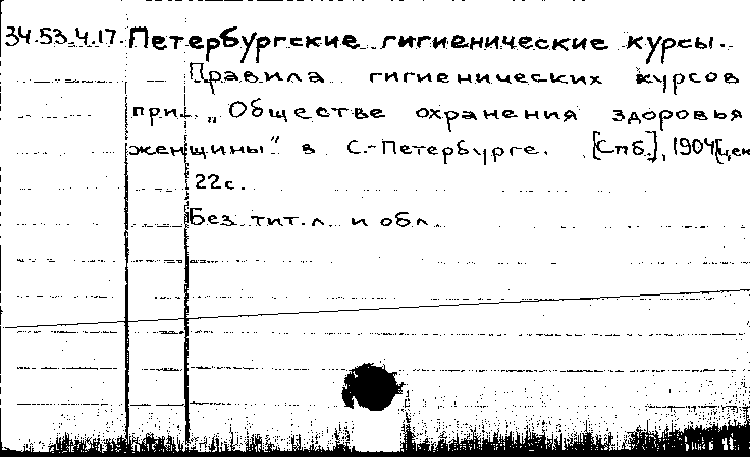 34.53.4.17. Петербургские гигиенические курсы.
Правила гигиенических курсов
при „Обществе охранения здоровья
женщины" в С.-Петербурге. [Спб.], 1904 [цен
22с.
Без тит.л. и обл.